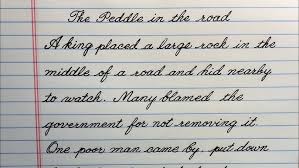 The Peddle in the road
A king placed a large rock in the
middle of a road and hid nearby
to watch. Many blamed the
government for not removing it.
One poor man came by. put down